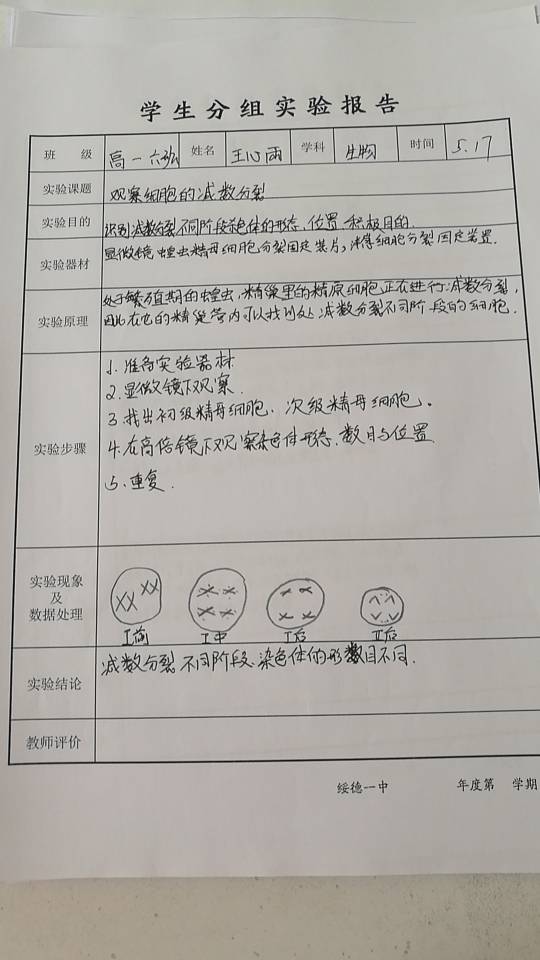 学生分组实验报告
班 级 高一六班 姓名 王心雨 学科 生物 时间 5.17
实验课题 观察细胞的减数分裂
实验目的 识别减数分裂不同阶段染色体的形态、位置、积极目的.
实验器材 显微镜 蝗虫精母细胞分裂固定装片,洋葱细胞分裂固定装置.
处于繁殖期的蝗虫,精巢里的精原细胞正在进行减数分裂,
实验原理
因此在它的精巢管内可以找到处减数分裂不同阶段的细胞.
1.准备实验器材
2.显微镜下观察.
3.找出初级精母细胞、次级精母细胞。
实验步骤
4.在高倍镜下观察染色体形态、数目与位置
5.重复.
实验现象
及
数据处理
I前 I中 I后 II后
减数分裂不同阶段染色体的形数目不同.
实验结论
教师评价
绥德一中 年度第 学期